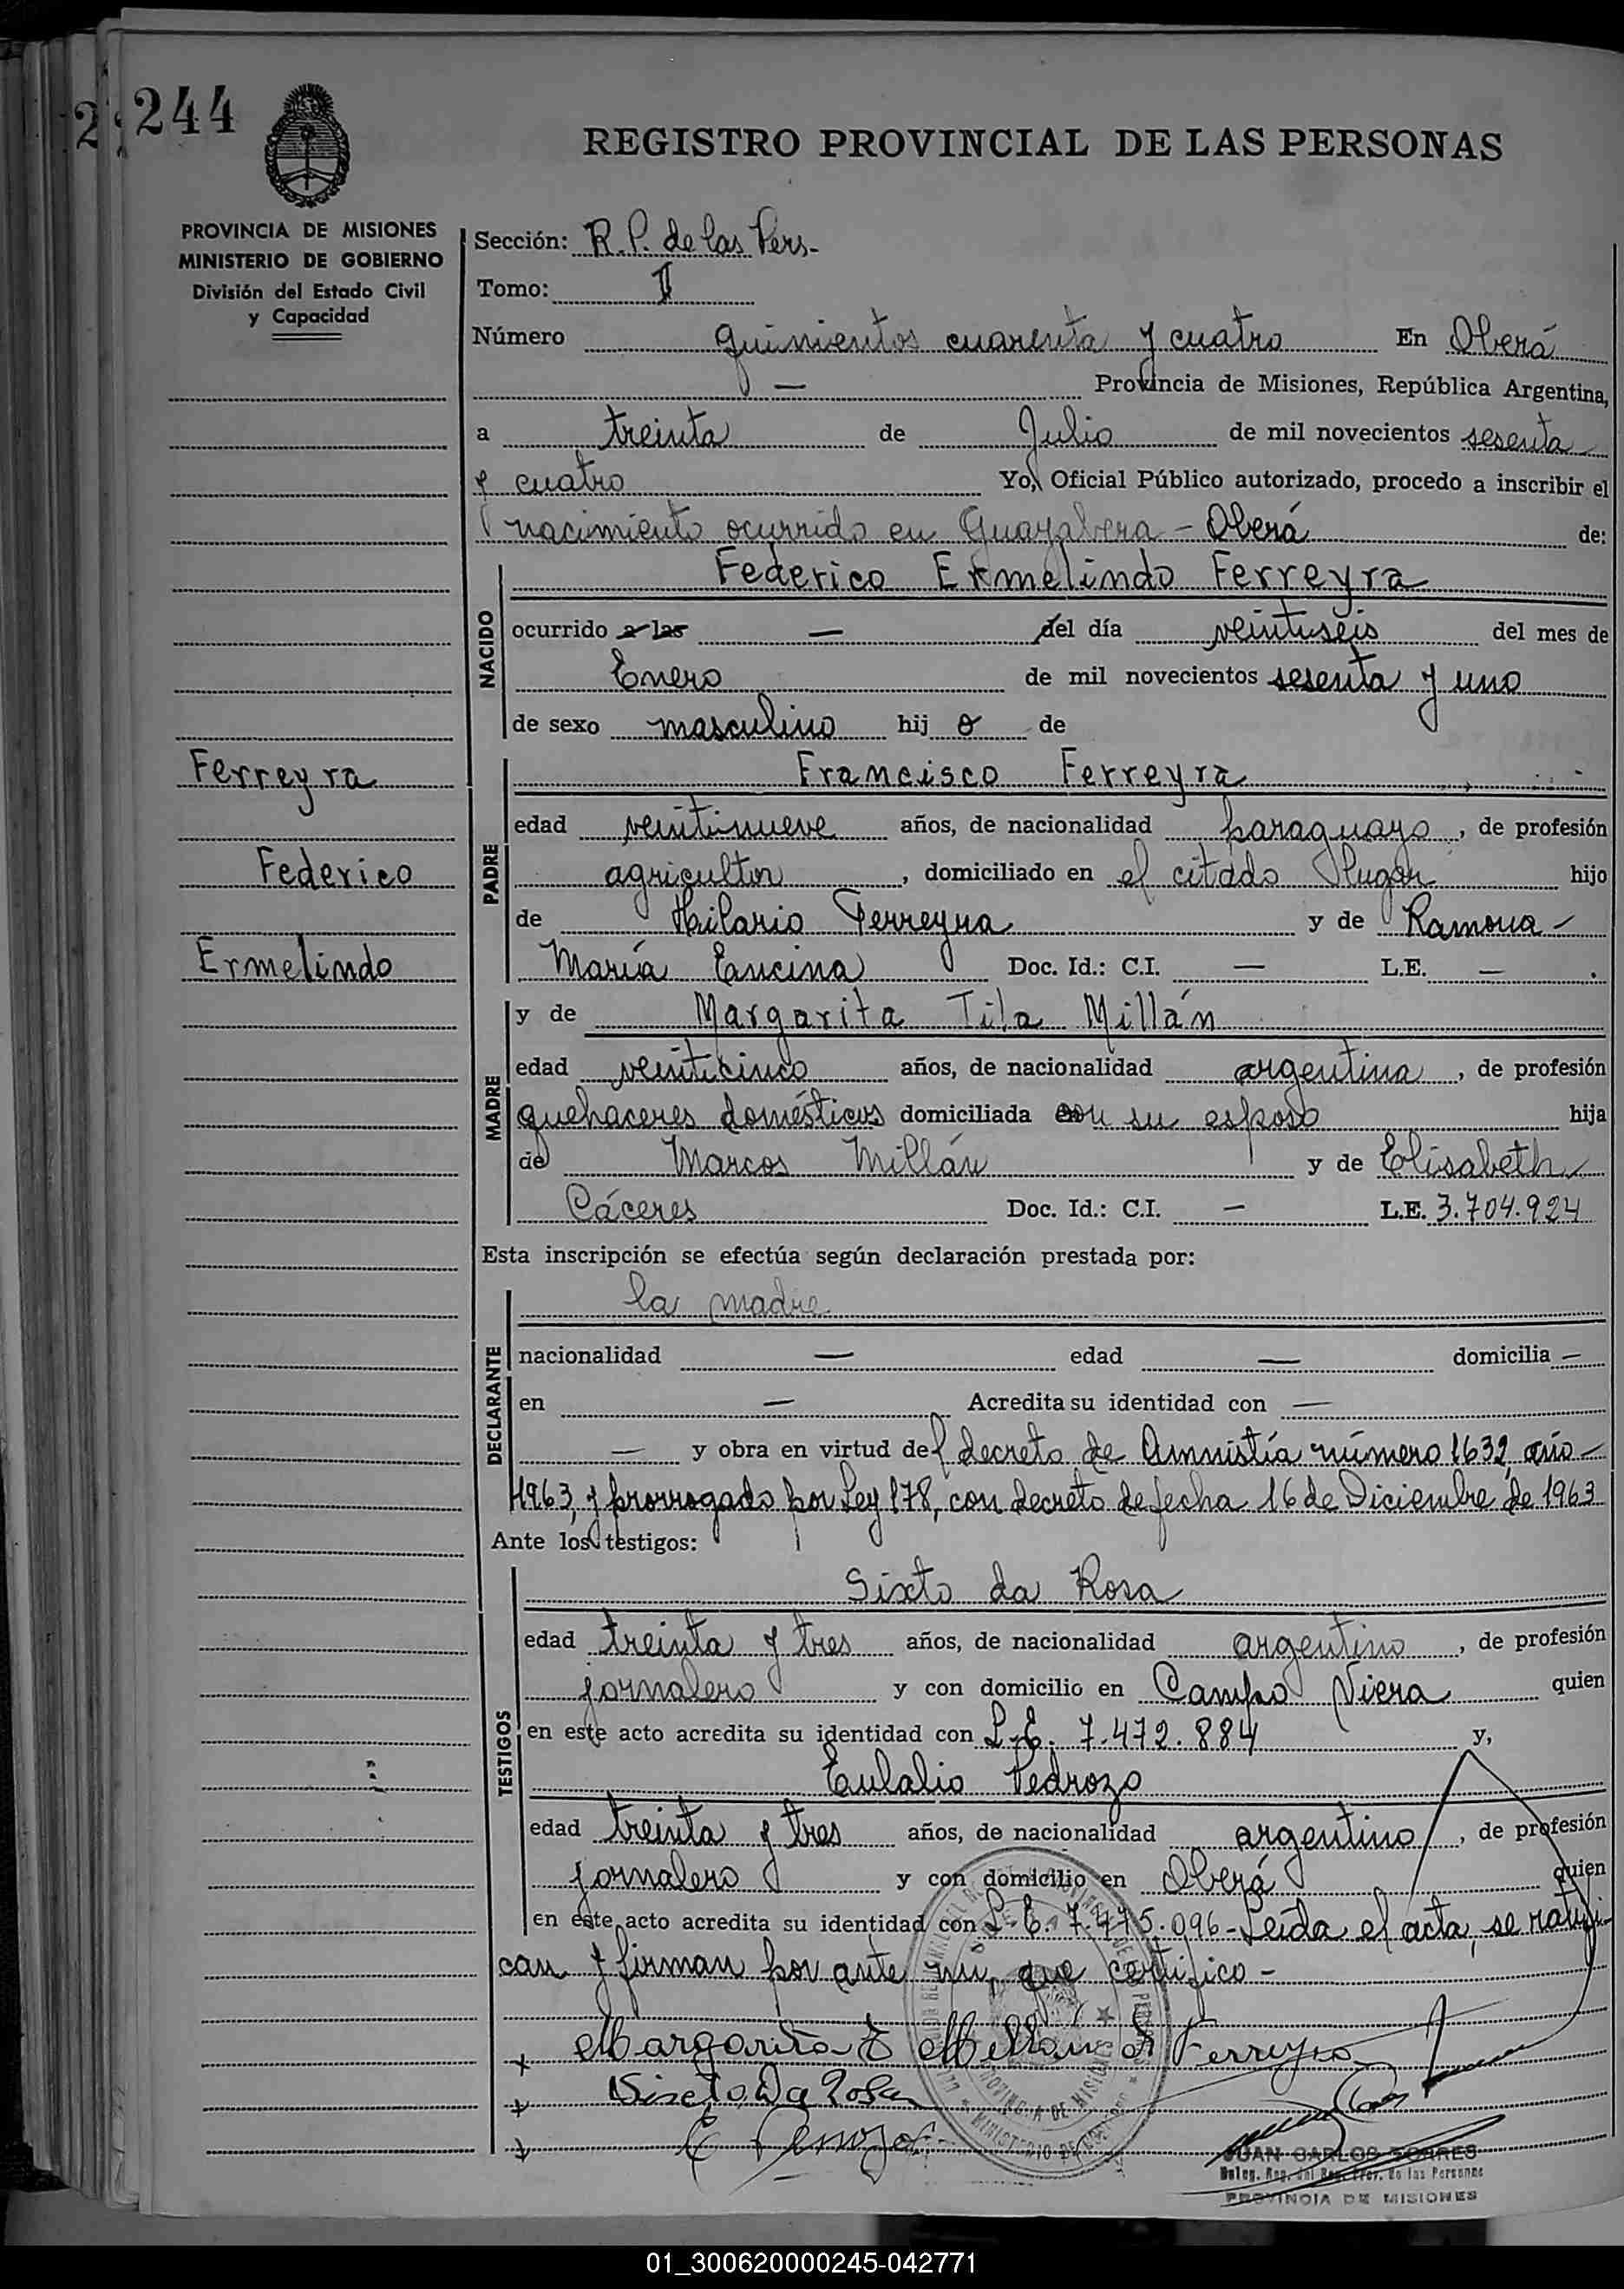 244
REGISTRO PROVINCIAL DE LAS PERSONAS
PROVINCIA DE MISIONES
MINISTERIO DE GOBIERNO
División del Estado Civil
y Capacidad
Sección: R.P. de las Pers-
Tomo: II
Número quinientos cuarenta y cuatro En Oberá
— Provincia de Misiones, República Argentina,
a treinta de Julio de mil novecientos sesenta
y cuatro Yo, Oficial Público autorizado, procedo a inscribir el
nacimiento ocurrido en Guayabera - Oberá de:
NACIDO
Federico Ermelindo Ferreyra
ocurrido a las — del día veintiseis del mes de
Enero de mil novecientos sesenta y uno
de sexo masculino hij o de
Ferreyra
Federico
Ermelindo
PADRE
Francisco Ferreyra
edad veintinueve años, de nacionalidad paraguayo, de profesión
agricultor, domiciliado en el citado lugar hijo
de Hilario Ferreyra y de Ramona -
María Encina Doc. Id.: C.I. — L.E. — .
MADRE
y de Margarita Tila Millán
edad veinticinco años, de nacionalidad argentina, de profesión
quehaceres domésticos domiciliada con su esposo hija
de Marcos Millán y de Elisabeth
Cáceres Doc. Id.: C.I. — L.E. 3.704.924
Esta inscripción se efectúa según declaración prestada por:
DECLARANTE
la madre
nacionalidad — edad — domicilia —
en — Acredita su identidad con —
— y obra en virtud del decreto de Amnistía número 1632 año -
1963, y prorrogado por Ley 178, con decreto de fecha 16 de Diciembre de 1963
Ante los testigos:
TESTIGOS
Sixto da Rosa
edad treinta y tres años, de nacionalidad argentino, de profesión
jornalero y con domicilio en Campo Viera quien
en este acto acredita su identidad con L.E. 7.472.884 y,
Eulalio Pedrozo
edad treinta y tres años, de nacionalidad argentino, de profesión
jornalero y con domicilio en Oberá quien
en este acto acredita su identidad con L.E. 7.475.096 - Leída el acta, se ratifi-
can y firman por ante mi, que certifico -
Margarita T Millan d Ferreyra
Sixto Da Rosa
JUAN CARLOS TORRES
PROVINCIA DE MISIONES
01_300620000245-042771